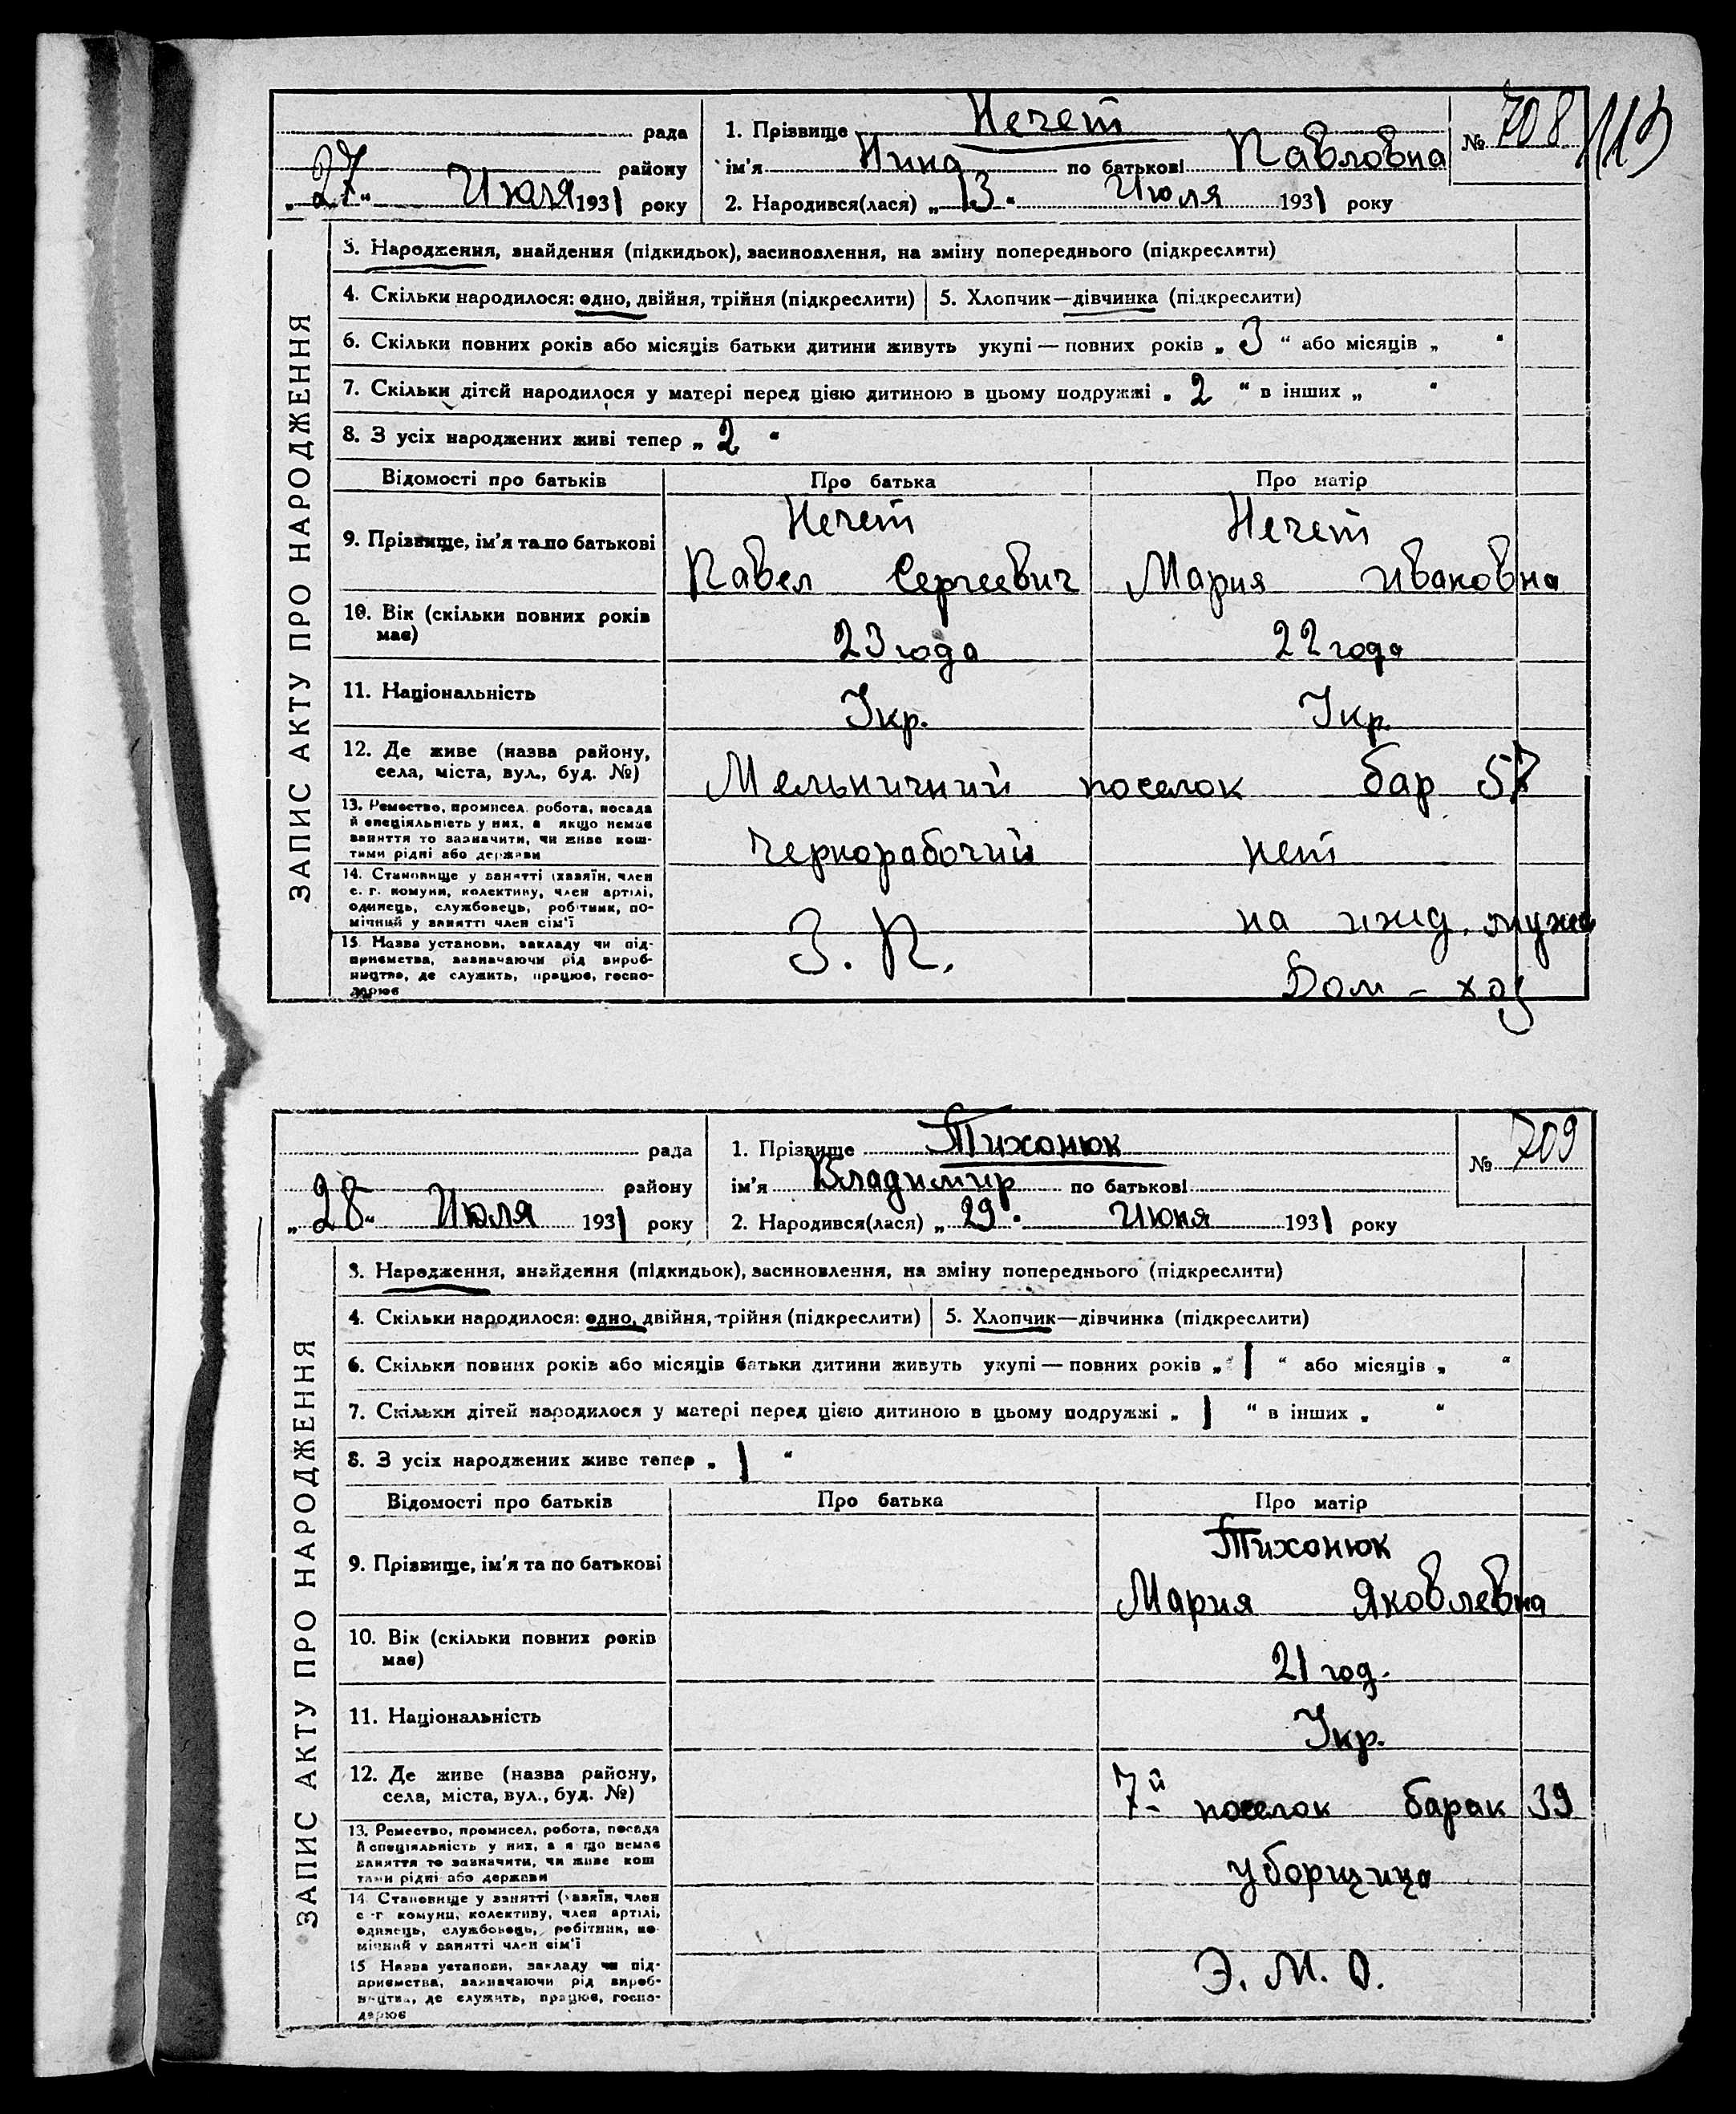 рада
району
„27“ Июля 1931 року
1. Прізвище Нечет
ім'я Нина по батькові Павловна
2. Народився(лася) „13“ Июля 1931 року
№ 708
ЗАПИС АКТУ ПРО НАРОДЖЕННЯ
3. Народження, знайдення (підкидьок), засиновлення, на зміну попереднього (підкреслити)
4. Скільки народилося: одно, двійня, трійня (підкреслити) 5. Хлопчик—дівчинка (підкреслити)
6. Скільки повних років або місяців батьки дитини живуть укупі — повних років „ 3 “ або місяців „ “
7. Скільки дітей народилося у матері перед цією дитиною в цьому подружжі „ 2 “ в інших „ “
8. З усіх народжених живі тепер „ 2 “
Відомості про батьків Про батька Про матір
9. Прізвище, ім'я та по батькові
Нечет
Павел Сергеевич
Нечет
Мария Ивановна
10. Вік (скільки повних років
має)
23 года
22 года
11. Національність
Укр.
Укр.
12. Де живе (назва району,
села, міста, вул., буд. №)
Мельничний поселок бар 57
13. Ремество, промисел, робота, посада
й спеціяльність у них, а якщо немає
заняття то зазначити, чи живе кош-
тами рідні або держави
Чернорабочий
нет
14. Становище у занятті (хазяїн, член
с. г. комуни, колективу, член артілі,
одинець, службовець, робітник, по-
мічний у занятті член сім'ї
на ижд. мужа
15. Назва установи, закладу чи під-
приємства, зазначаючи рід вироб-
ництва, де служить, працює, госпо-
дарює
З. П.
Дом - хоз
рада
району
„28“ Июля 1931 року
1. Прізвище Тихонюк
ім'я Владимир по батькові
2. Народився(лася) „29“ Июня 1931 року
№ 709
ЗАПИС АКТУ ПРО НАРОДЖЕННЯ
3. Народження, знайдення (підкидьок), засиновлення, на зміну попереднього (підкреслити)
4. Скільки народилося: одно, двійня, трійня (підкреслити) 5. Хлопчик—дівчинка (підкреслити)
6. Скільки повних років або місяців батьки дитини живуть укупі — повних років „ 1 “ або місяців „ “
7. Скільки дітей народилося у матері перед цією дитиною в цьому подружжі „ 1 “ в інших „ “
8. З усіх народжених живе тепер „ 1 “
Відомості про батьків Про батька Про матір
9. Прізвище, ім'я та по батькові
Тихонюк
Мария Яковлевна
10. Вік (скільки повних років
має)
21 год.
11. Національність
Укр.
12. Де живе (назва району,
села, міста, вул., буд. №)
7й поселок барак 39
13. Ремество, промисел, робота, посада
й спеціяльність у них, а якщо немає
заняття то зазначити, чи живе кош
тами рідні або держави
уборщица
14. Становище у занятті (хазяїн, член
с -г комуни, колективу, член артілі,
одинець, службовець, робітник, по-
мічний у занятті член сім'ї
15 Назва установи, закладу чи під-
приємства, зазначаючи рід вироб-
ництва, де служить, працює, госпо-
дарює
Э. М. О.